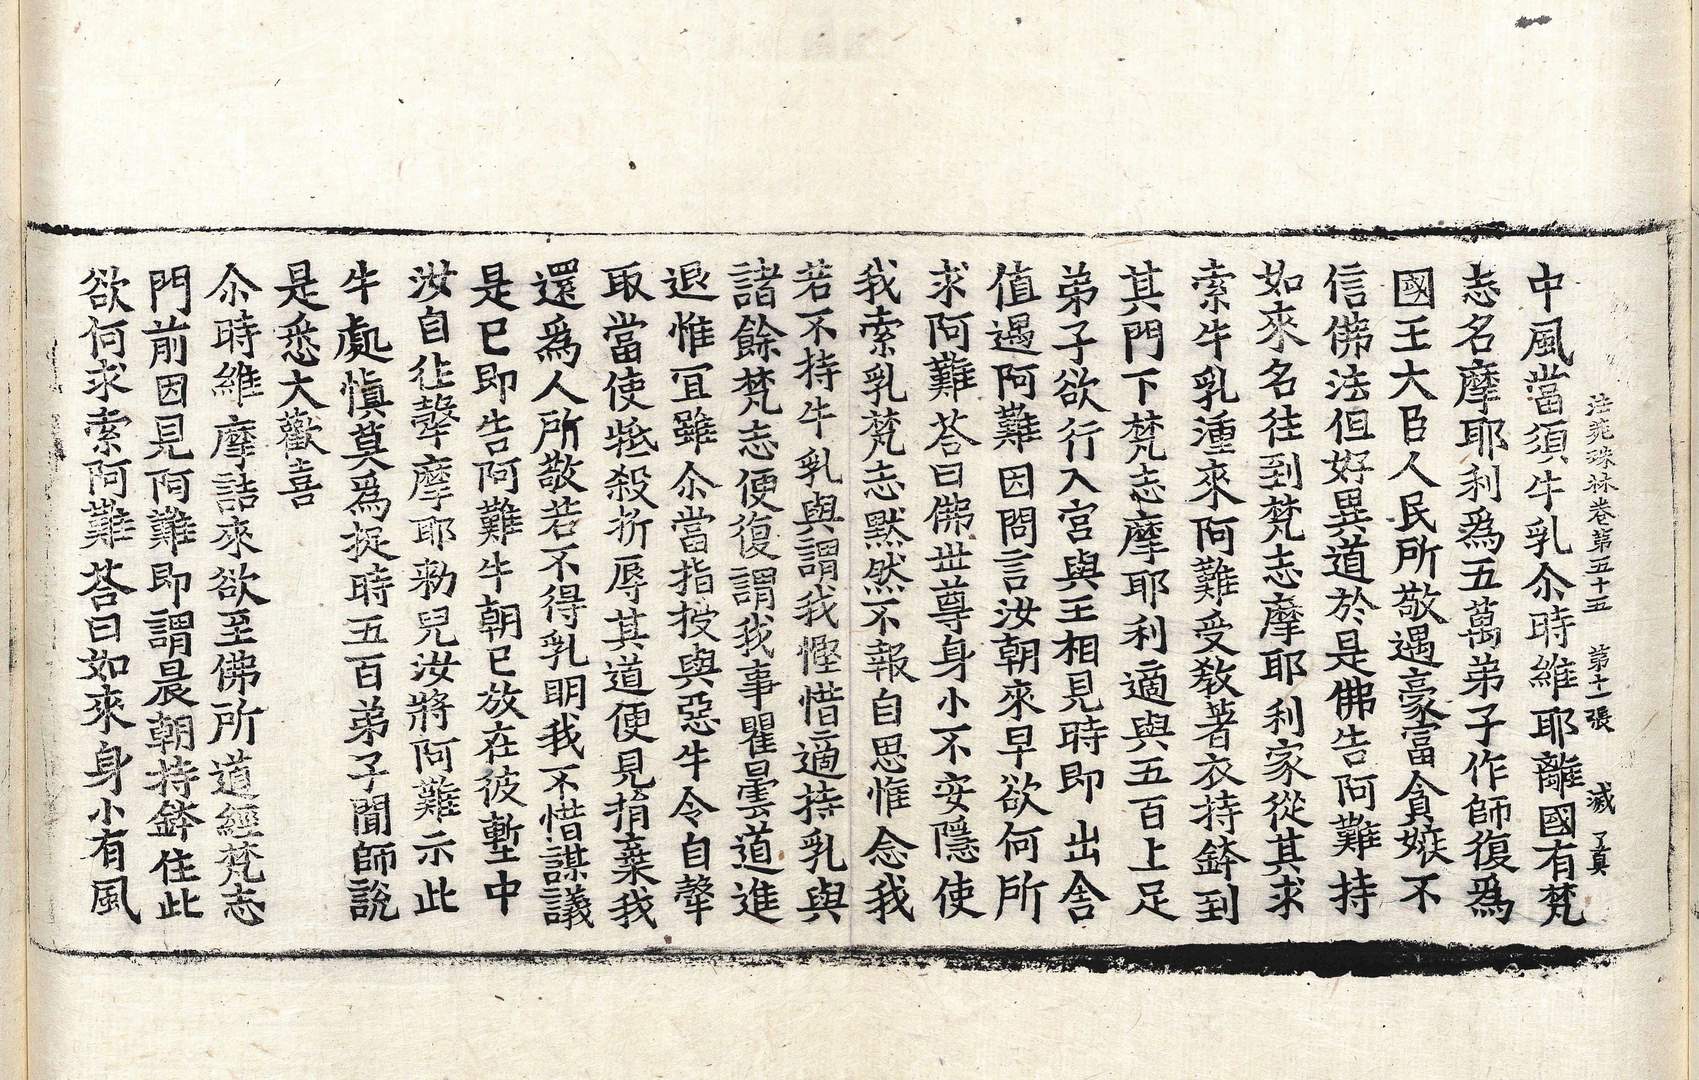 法苑珠林卷第五十五 第十一張 滅 了真
中風當須牛乳尒時維耶離國有梵
志名摩耶利爲五萬弟子作師復爲
國王大臣人民所敬遇豪富貪嫉不
信佛法但好異道於是佛告阿難持
如來名往到梵志摩耶利家從其求
索牛乳湩來阿難受教著衣持鉢到
其門下梵志摩耶利適與五百上足
弟子欲行入宮與王相見時即出舍
值遇阿難因問言汝朝來早欲何所
求阿難荅曰佛世尊身小不安隱使
我索乳梵志默然不報自思惟念我
若不持牛乳與謂我慳惜適持乳與
諸餘梵志便復謂我事瞿曇道進
退惟宜雖尒當指授與惡牛令自𤛓
取當使觝殺折辱其道便見捐棄我
還爲人所敬若不得乳明我不惜謀議
是已即告阿難牛朝已放在彼塹中
汝自往𤛓摩耶勑兒汝將阿難示此
牛處慎莫爲捉時五百弟子聞師說
是悉大歡喜
尒時維摩詰來欲至佛所道經梵志
門前因見阿難即謂晨朝持鉢住此
欲何求索阿難荅曰如來身小有風